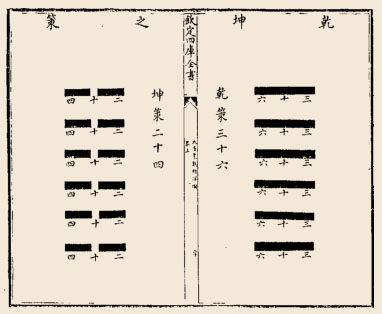 乾坤之策
乾策三十六
三十六
三十六
三十六
三十六
三十六
三十六
欽定四庫全書
坤策二十四
二十四
二十四
二十四
二十四
二十四
二十四